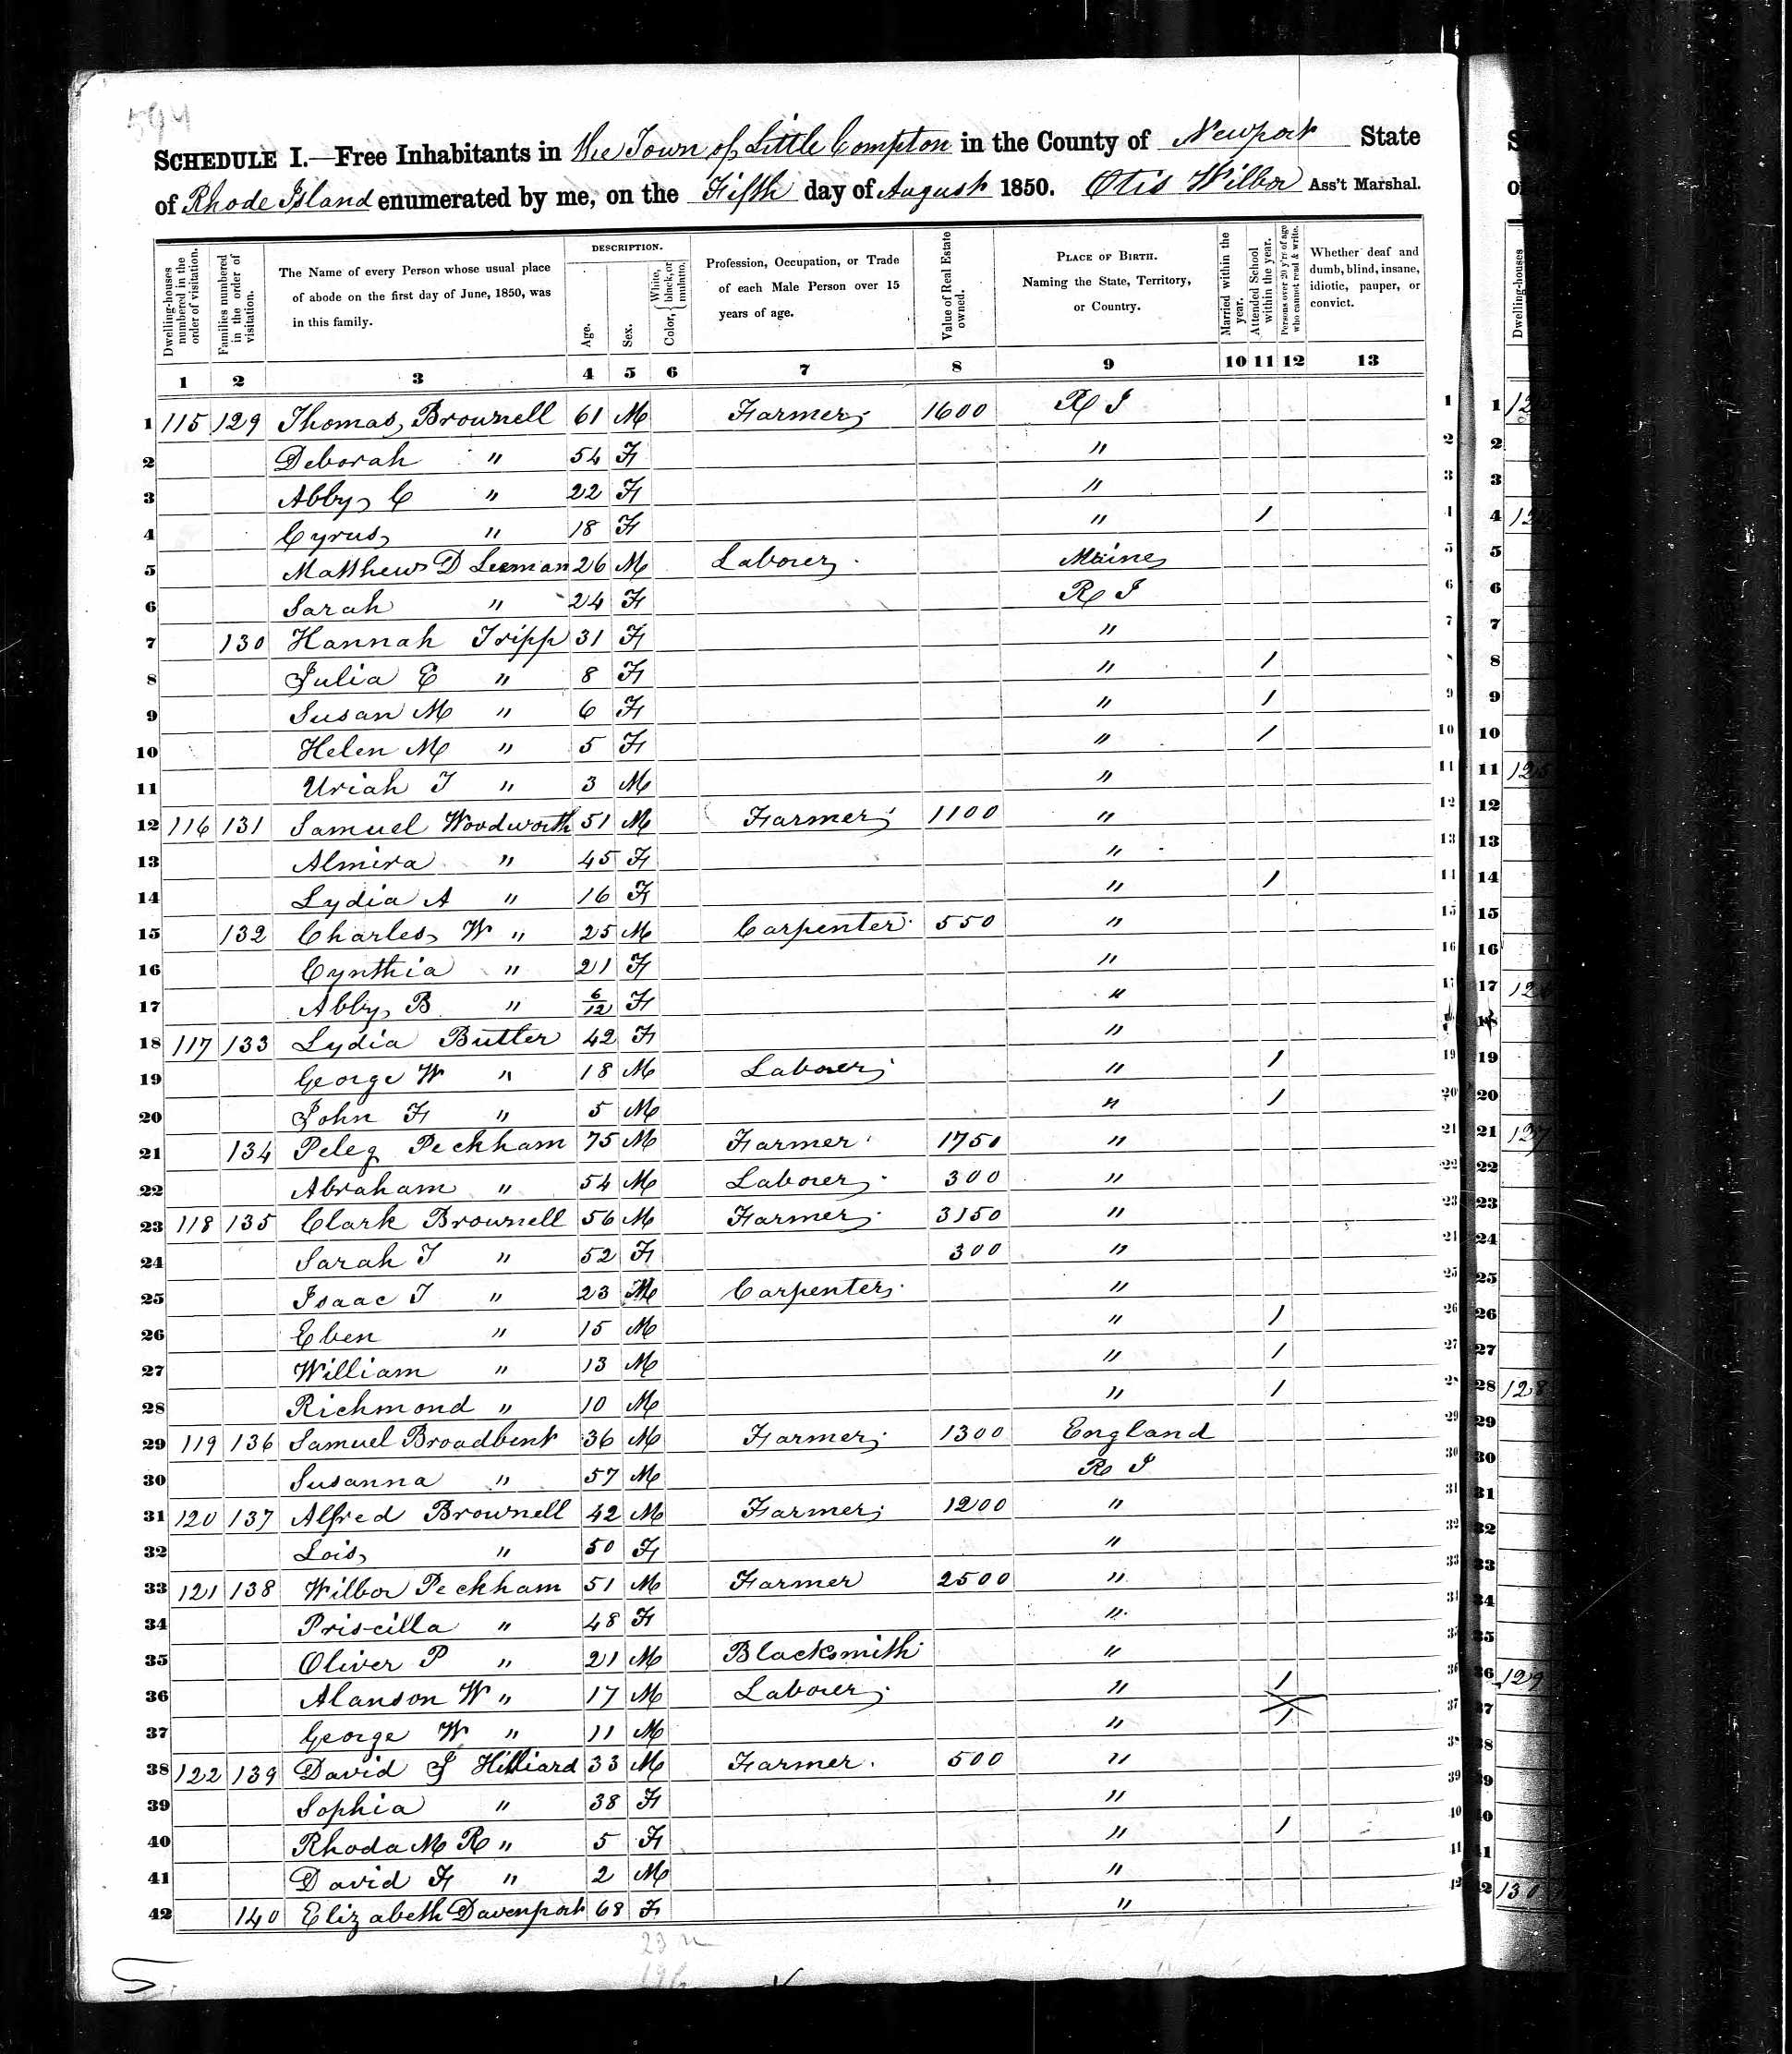 594
SCHEDULE I.—Free Inhabitants in the Town of Little Compton in the County of Newport State
of Rhode Island enumerated by me, on the Fifth day of August 1850. Otis Wilbor Ass't Marshal.
Dwelling-houses numbered in the order of visitation.
Families numbered in the order of visitation.
The Name of every Person whose usual place of abode on the first day of June, 1850, was in this family.
DESCRIPTION.
Age.
Sex.
Color, { White, black, or mulatto.
Profession, Occupation, or Trade of each Male Person over 15 years of age.
Value of Real Estate owned.
PLACE OF BIRTH. Naming the State, Territory, or Country.
Married within the year.
Attended School within the year.
Persons over 20 y'rs of age who cannot read & write.
Whether deaf and dumb, blind, insane, idiotic, pauper, or convict.
1 2 3 4 5 6 7 8 9 10 11 12 13
1 115 129 Thomas Brownell 61 M Farmer 1600 R I 1
2 Deborah " 54 F " 2
3 Abby C " 22 F " 3
4 Cyrus " 18 F " 1 4
5 Matthew D Leeman 26 M Laborer Maine 5
6 Sarah " 24 F R I 6
7 130 Hannah Tripp 31 F " 7
8 Julia E " 8 F " 1
9 Susan M " 6 F " 1 9
10 Helen M " 5 F " 1 10
11 Uriah T " 3 M " 11
12 116 131 Samuel Woodworth 51 M Farmer 1100 " 12
13 Almira " 45 F " 13
14 Lydia A " 16 F " 1 14
15 132 Charles W " 25 M Carpenter 550 " 15
16 Cynthia " 21 F " 16
17 Abby B " 6/12 F " 17
18 117 133 Lydia Butler 42 F "
19 George W " 18 M Laborer " 1 19
20 John F " 5 M " 1 20
21 134 Peleg Peckham 75 M Farmer 1750 " 21
22 Abraham " 54 M Laborer 300 " 22
23 118 135 Clark Brownell 56 M Farmer 3150 " 23
24 Sarah T " 52 F 300 " 24
25 Isaac T " 23 M Carpenter " 25
26 Eben " 15 M " 1 26
27 William " 13 M " 1 27
28 Richmond " 10 M " 1 28
29 119 136 Samuel Broadbent 36 M Farmer 1300 England 29
30 Susanna " 57 M R I 30
31 120 137 Alfred Brownell 42 M Farmer 1200 " 31
32 Lois " 50 F " 32
33 121 138 Wilbor Peckham 51 M Farmer 2500 " 33
34 Priscilla " 48 F " 34
35 Oliver P " 21 M Blacksmith " 35
36 Alanson W " 17 M Laborer " 1 36
37 George W " 11 M " 1 37
38 122 139 David J Hilliard 33 M Farmer 500 " 38
39 Sophia " 38 F " 39
40 Rhoda M R " 5 F " 1 40
41 David F " 2 M " 41
42 140 Elizabeth Davenport 68 F " 42
23